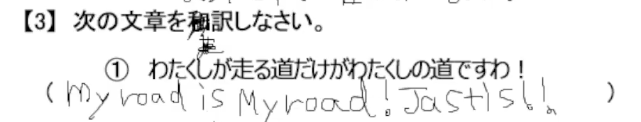 【3】 次の文章を英訳しなさい。
① わたくしが走る道だけがわたくしの道ですわ！
( My road is My road! Jastis!! )